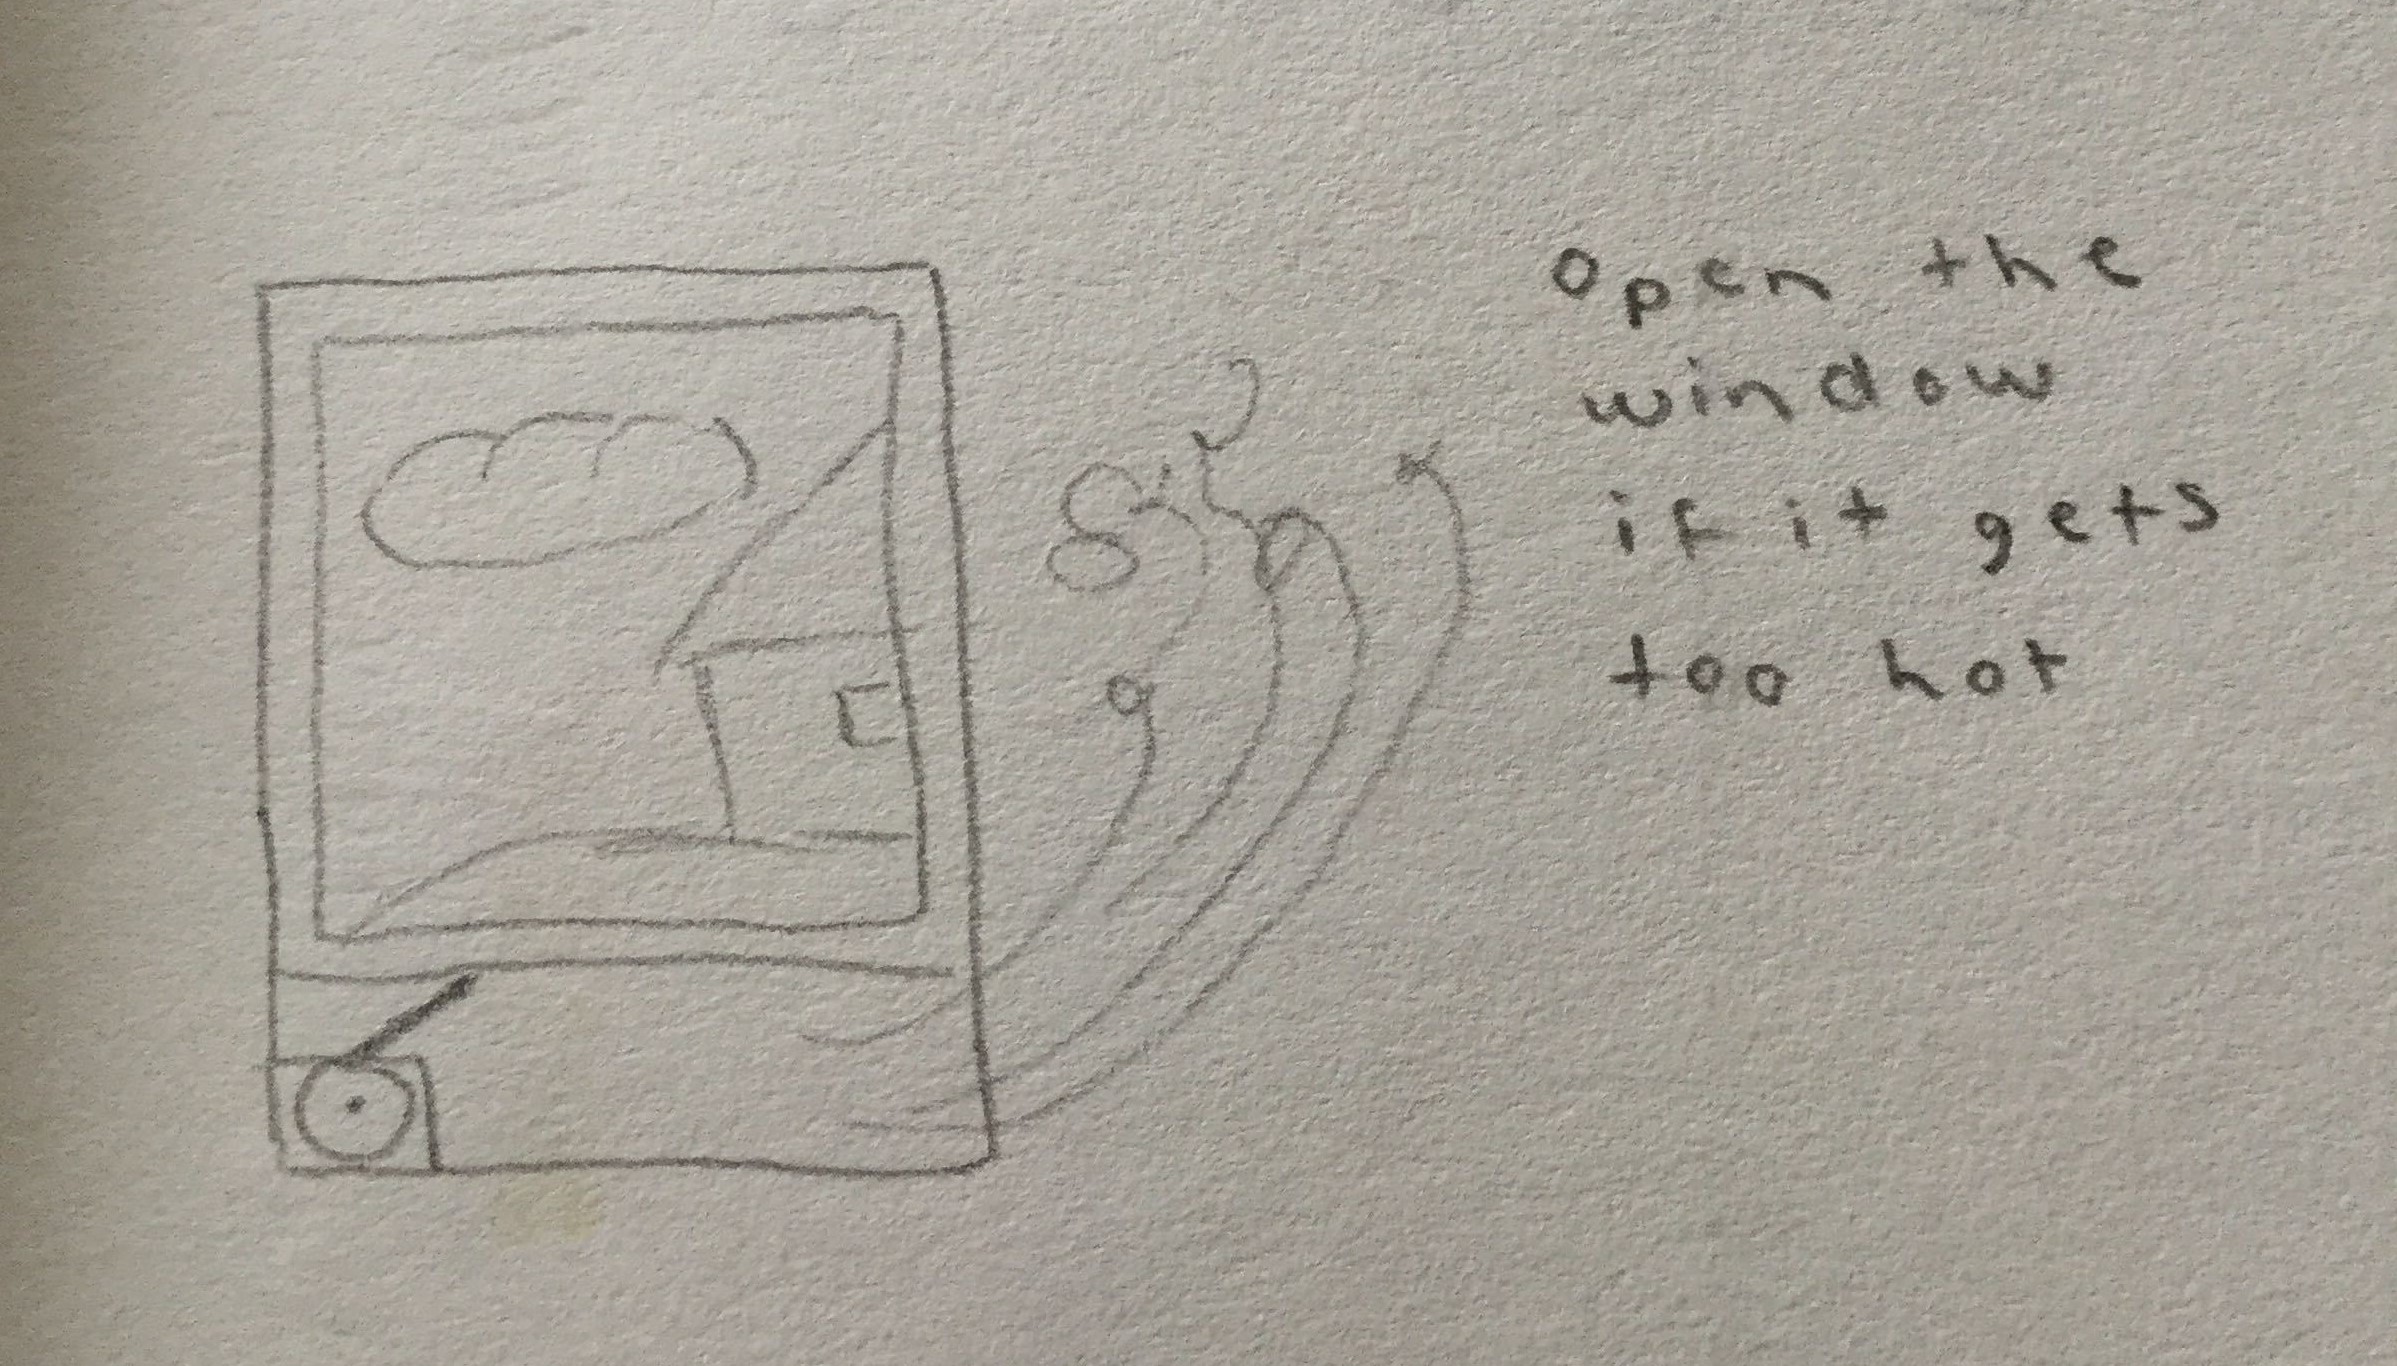 open the
window
if it gets
too hot